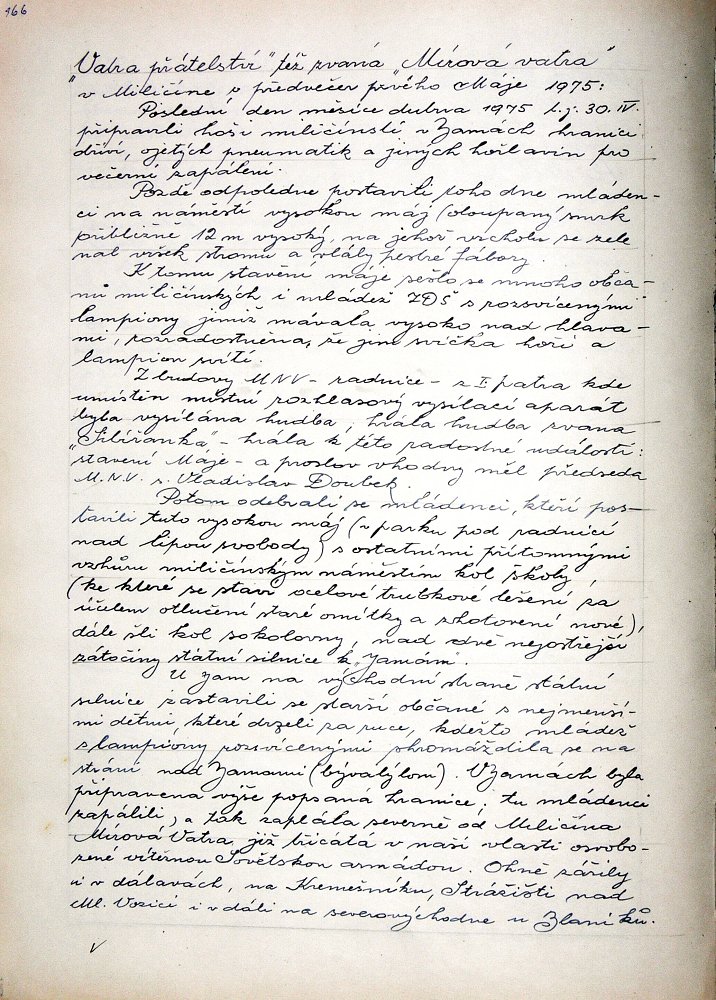 166
„Vatra přátelství" též zvaná „Mírová vatra"
v Miličíně v předvečer prvého Máje 1975:
Poslední den měsíce dubna 1975 t.j. 30. IV.
připravili hoši miličínstí v Jamách hranici
dříví, ojetých pneumatik a jiných hořlavin pro
večerní zapálení.
Pozdě odpoledne postavili toho dne mláden-
ci na náměstí vysokou máj (oloupaný smrk
přibližně 12 m vysoký, na jehož vrcholu se zele
nal vršek stromu a vlály pestré fábory.
K tomu stavění máje sešlo se mnoho obča-
nů miličínských i mládež ZDŠ s rozsvícenými
lampiony jimiž mávala vysoko nad hlava-
mi, rozradostněna, že jim svíčka hoří a
lampion svítí.
Z budovy MNV - radnice - z I. patra kde
umístěn místní rozhlasový vysílací aparát
byla vysílána hudba, hrála hudba zvaná
„Sibiřanka" - hrála k této radostné události:
stavení Máje - a proslov vhodný měl předseda
M.N.V. s. Vladislav Doubek.
Potom odebrali se mládenci, kteří pos-
tavili tuto vysokou máj (v parku pod radnicí
nad lípou svobody) s ostatními přítomnými
vzhůru miličínským náměstím kol školy,
(ke které se staví ocelové trubkové lešení za
účelem otlučení staré omítky a zhotovení nové),
dále šli kol sokolovny, nad dvě nejostřejší
zátočiny státní silnice k „Jamám".
U Jam na východní straně státní
silnice zastavili se starší občané s nejmenší-
mi dětmi, které drželi za ruce, kdežto mládež
s lampióny rozsvícenými shromáždila se na
stráni nad Jamami (bývalý lom). V Jamách byla
připravena výše popsaná hranice; tu mládenci
zapálili, a tak zaplála severně od Miličína
Mírová Vatra, již třicátá v naší vlasti osvobo-
zené vítěznou Sovětskou armádou. Ohně zářily
i v dálavách, na Kremešníku, Strážišti nad
Ml. Vožicí i v dáli na severovýchodne u Blaníků.